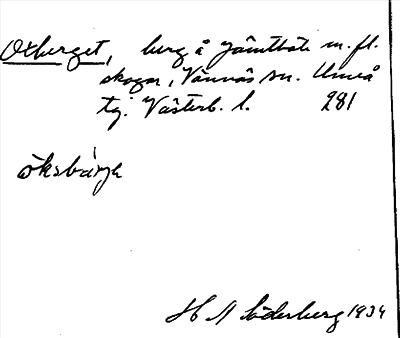 Oxberget, berg å Jämtböle m. fl.
skogar, Vännäs sn. Umeå
tg. Västerb. l. 281
öksbärje
H N Söderberg 1934